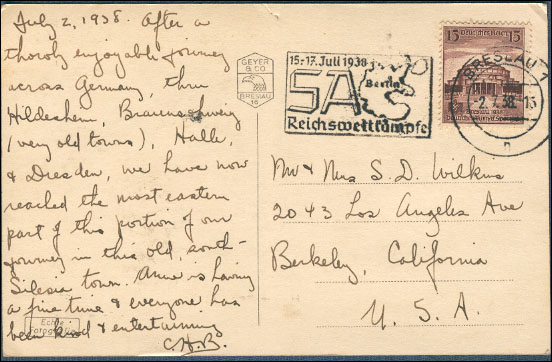 July 2, 1938. After a
thoroly enjoyable journey
across Germany, thru
Hildesheim, Braunschweig
(very old towns), Halle,
& Dresden, we have now
reached the most eastern
part of this portion of our
journey in this old, south-
Silesia town. Anne is having
a fine time & everyone has
been kind & entertaining
C.H.B.
Echte
Fotografie
GEYER
& CO
BRESLAU
16
15.-17. Juli 1938
SA
Berlin
Reichswettkämpfe
15 Deutsches Reich 15
BRESLAU 1
-2.7.38.-13
n
Mr & Mrs S. D. Wilkins
2043 Los Angeles Ave
Berkeley, California
U. S. A.